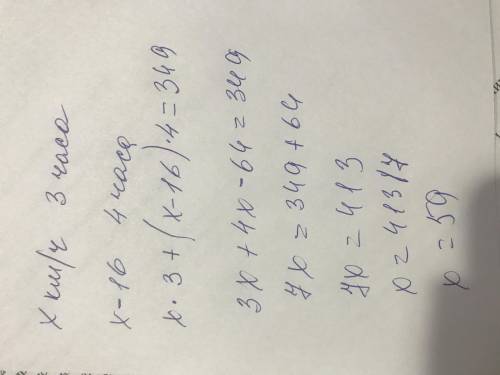 x км/ч 3 часа
x-16 4 часа
x·3+(x-16)·4=349
3x+4x-64=349
7x=349+64
7x=413
x=413/7
x=59